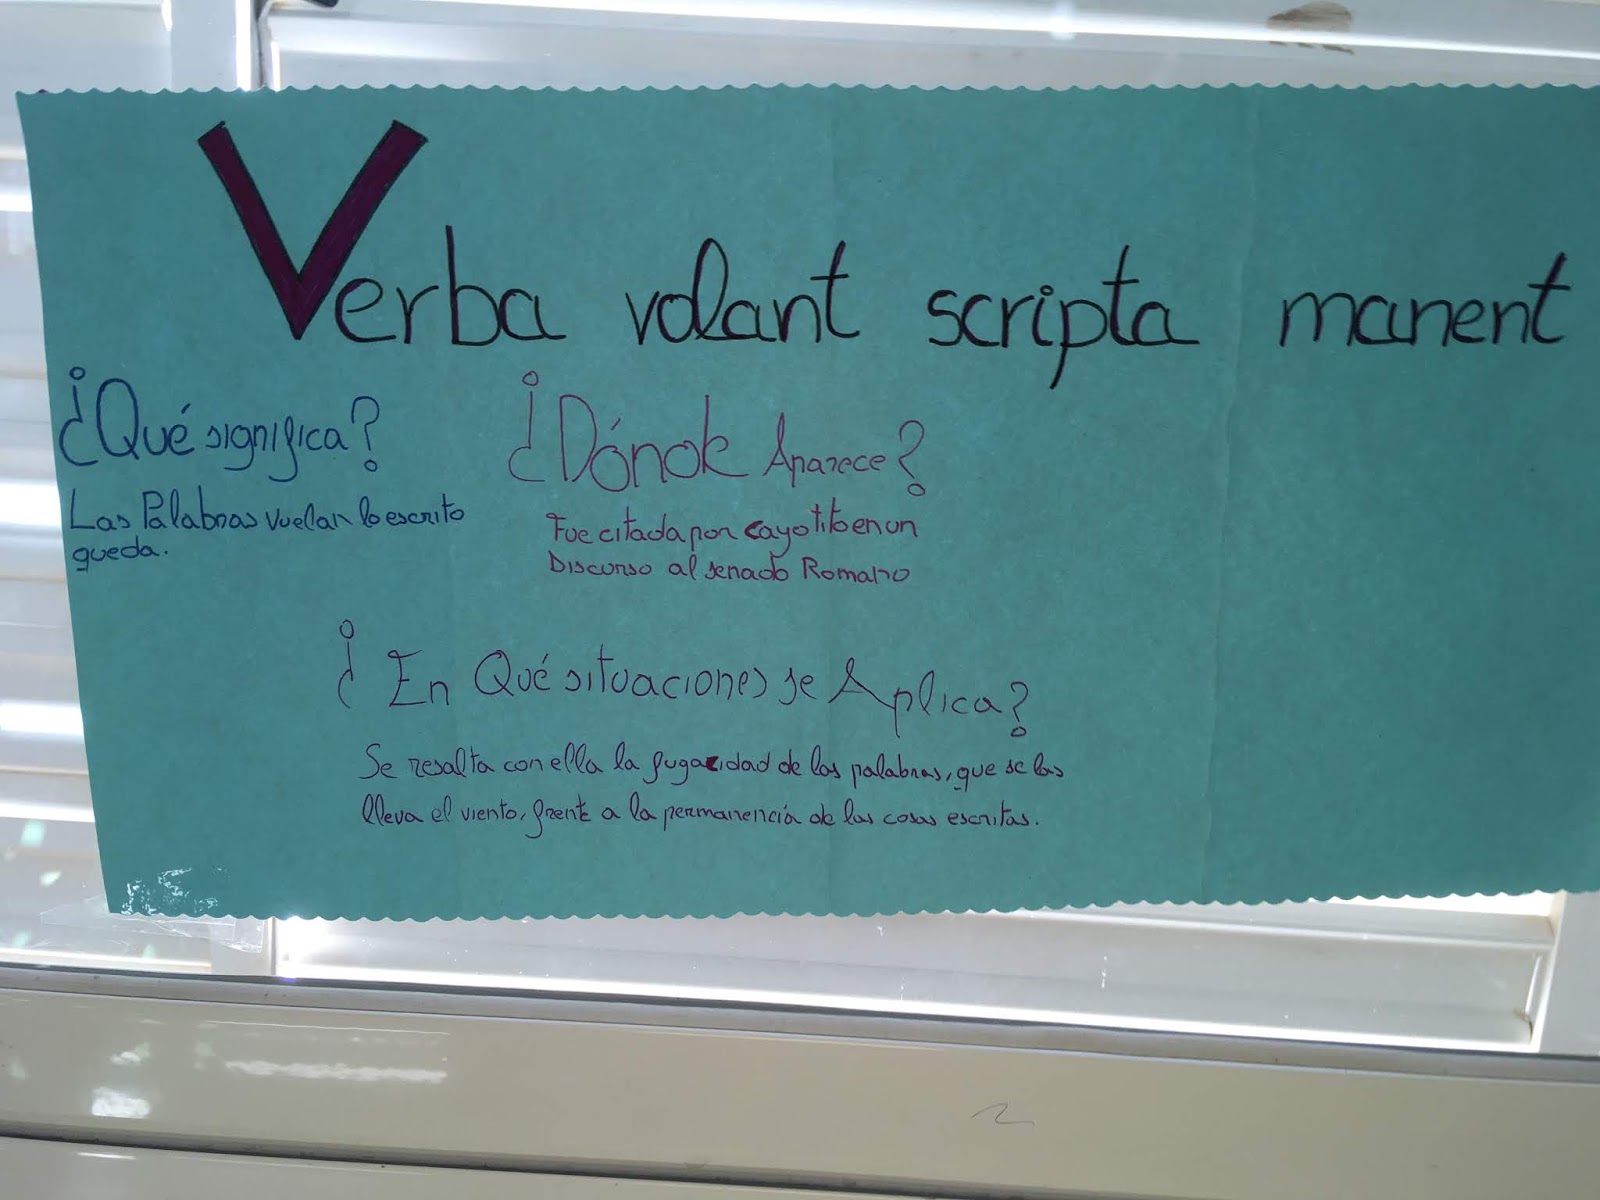 Verba volant scripta manent
¿Qué significa?
Las Palabras vuelan lo escrito
queda.
¿Dónde Aparece?
Fue citada por Cayo tito en un
Discurso al senado Romano
¿En Qué situaciones se Aplica?
Se resalta con ella la fugacidad de las palabras, que se las
lleva el viento, frente a la permanencia de las cosas escritas.